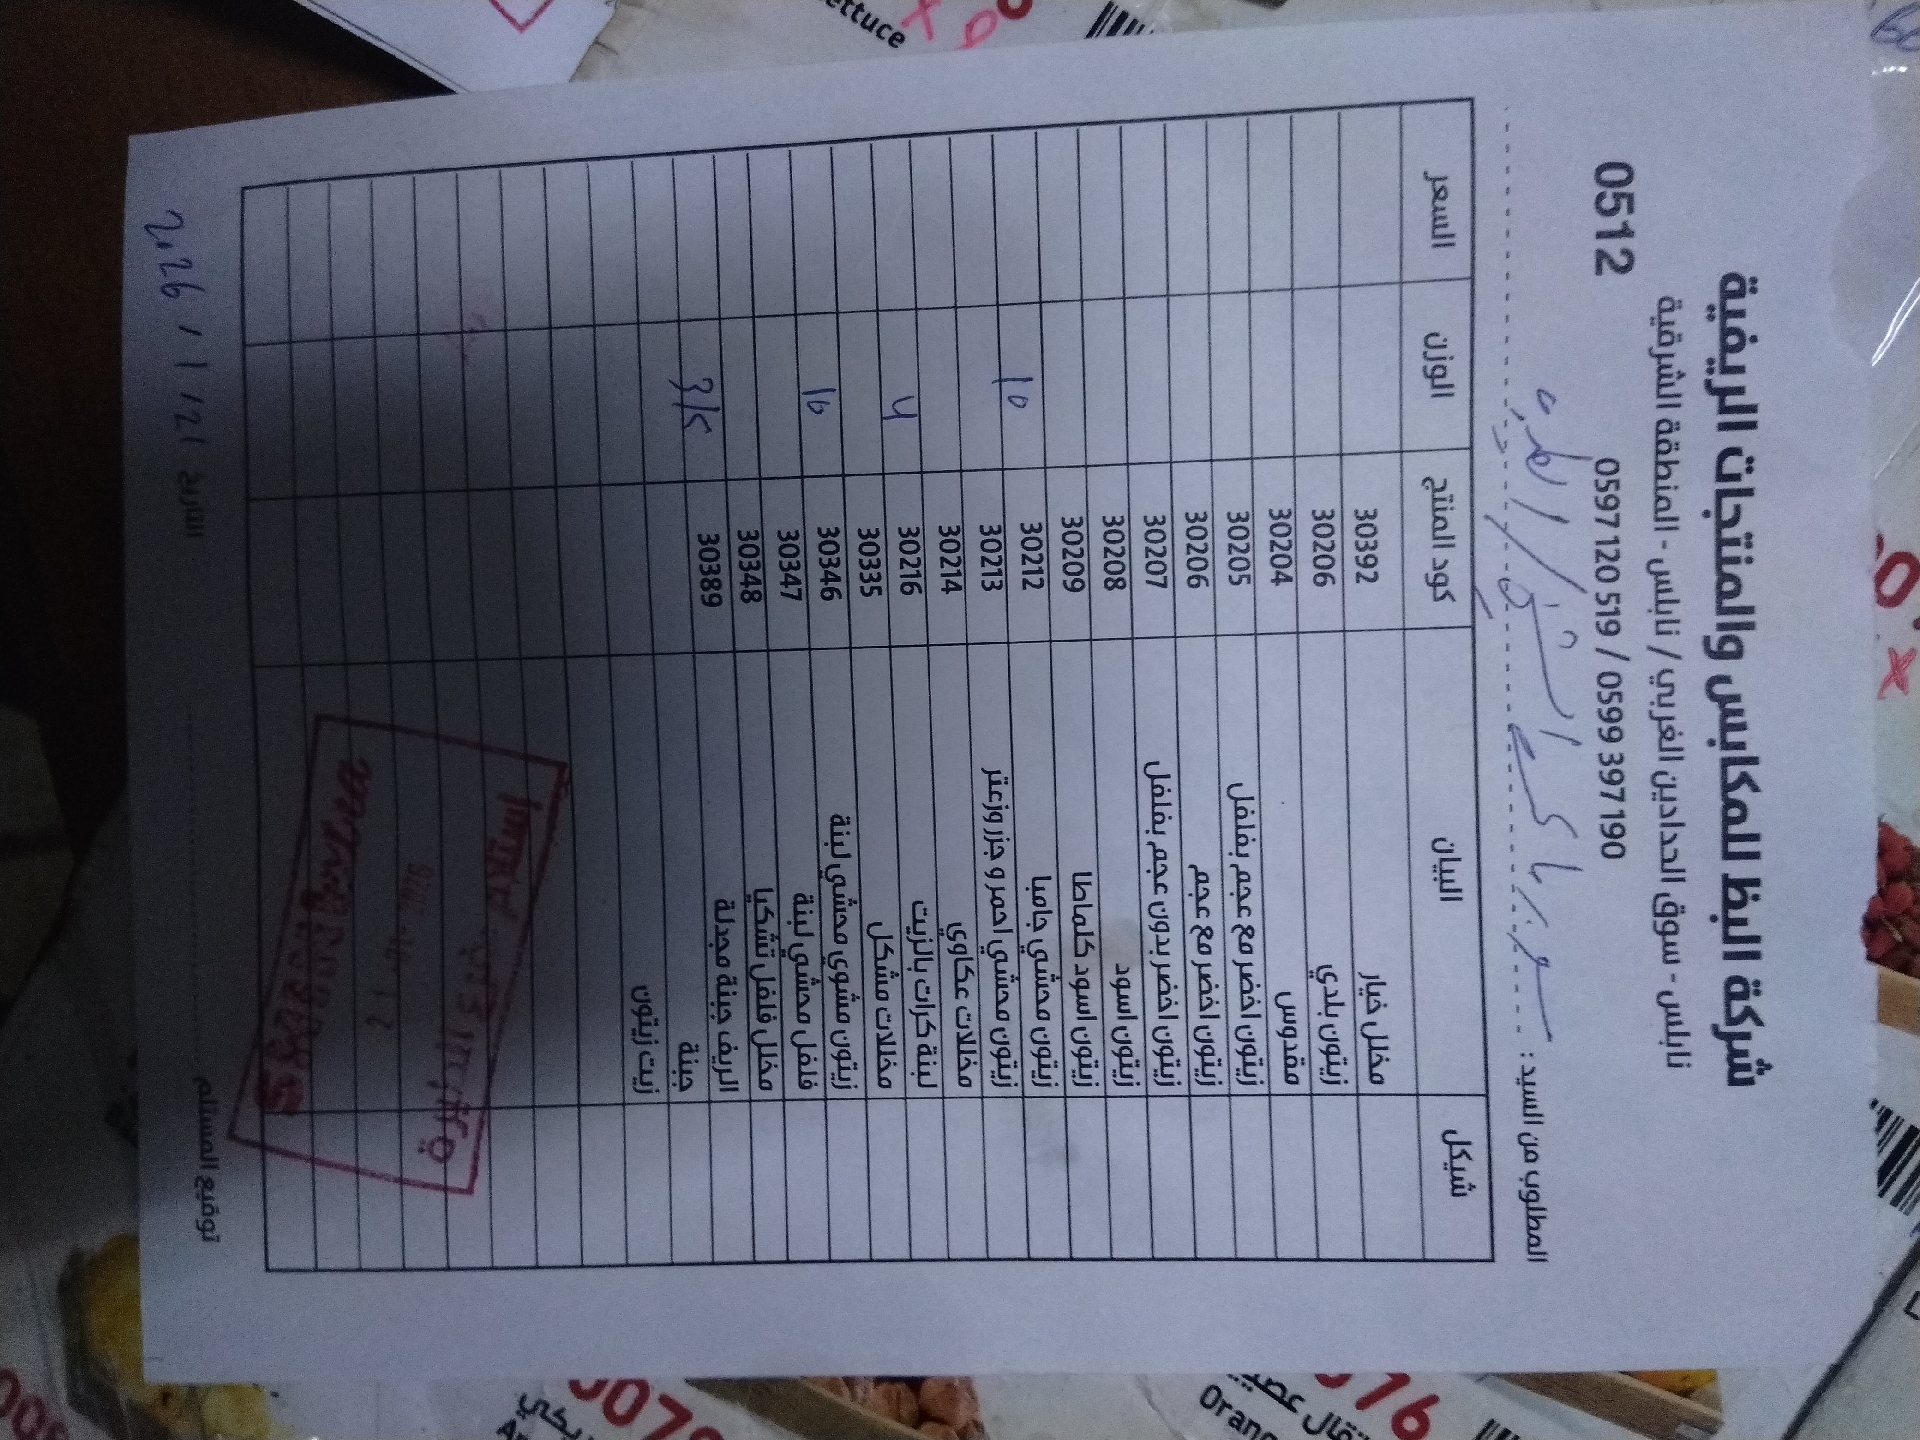 شركة البظ للمكابس والمنتجات الريفية
نابلس - سوق الحدادين الغربي / نابلس - المنطقة الشرقية
0597 120 519 / 0599 397 190
0512
المطلوب من السيد:
شيكل البيان كود المنتج الوزن السعر
مخلل خيار 30392
زيتون بلدي 30206
مقدوس 30204
زيتون اخضر مع عجم بفلفل 30205
زيتون اخضر مع عجم 30206
زيتون اخضر بدون عجم بفلفل 30207
زيتون اسود 30208
زيتون اسود كلماطا 30209
زيتون محشي جامبا 30212 10
زيتون محشي احمر و جزر وزعتر 30213
مخللات عكاوي 30214
لبنة كرات بالزيت 30216 4
مخللات مشكل 30335
زيتون مشوي محشي لبنة 30346 16
فلفل محشي لبنة 30347
مخلل فلفل تشكيا 30348
الريف جبنة مجدلة 30389
جبنة
زيت زيتون
توقيع المستلم
التاريخ 21 / 1 / 2026
Orang
ettuce